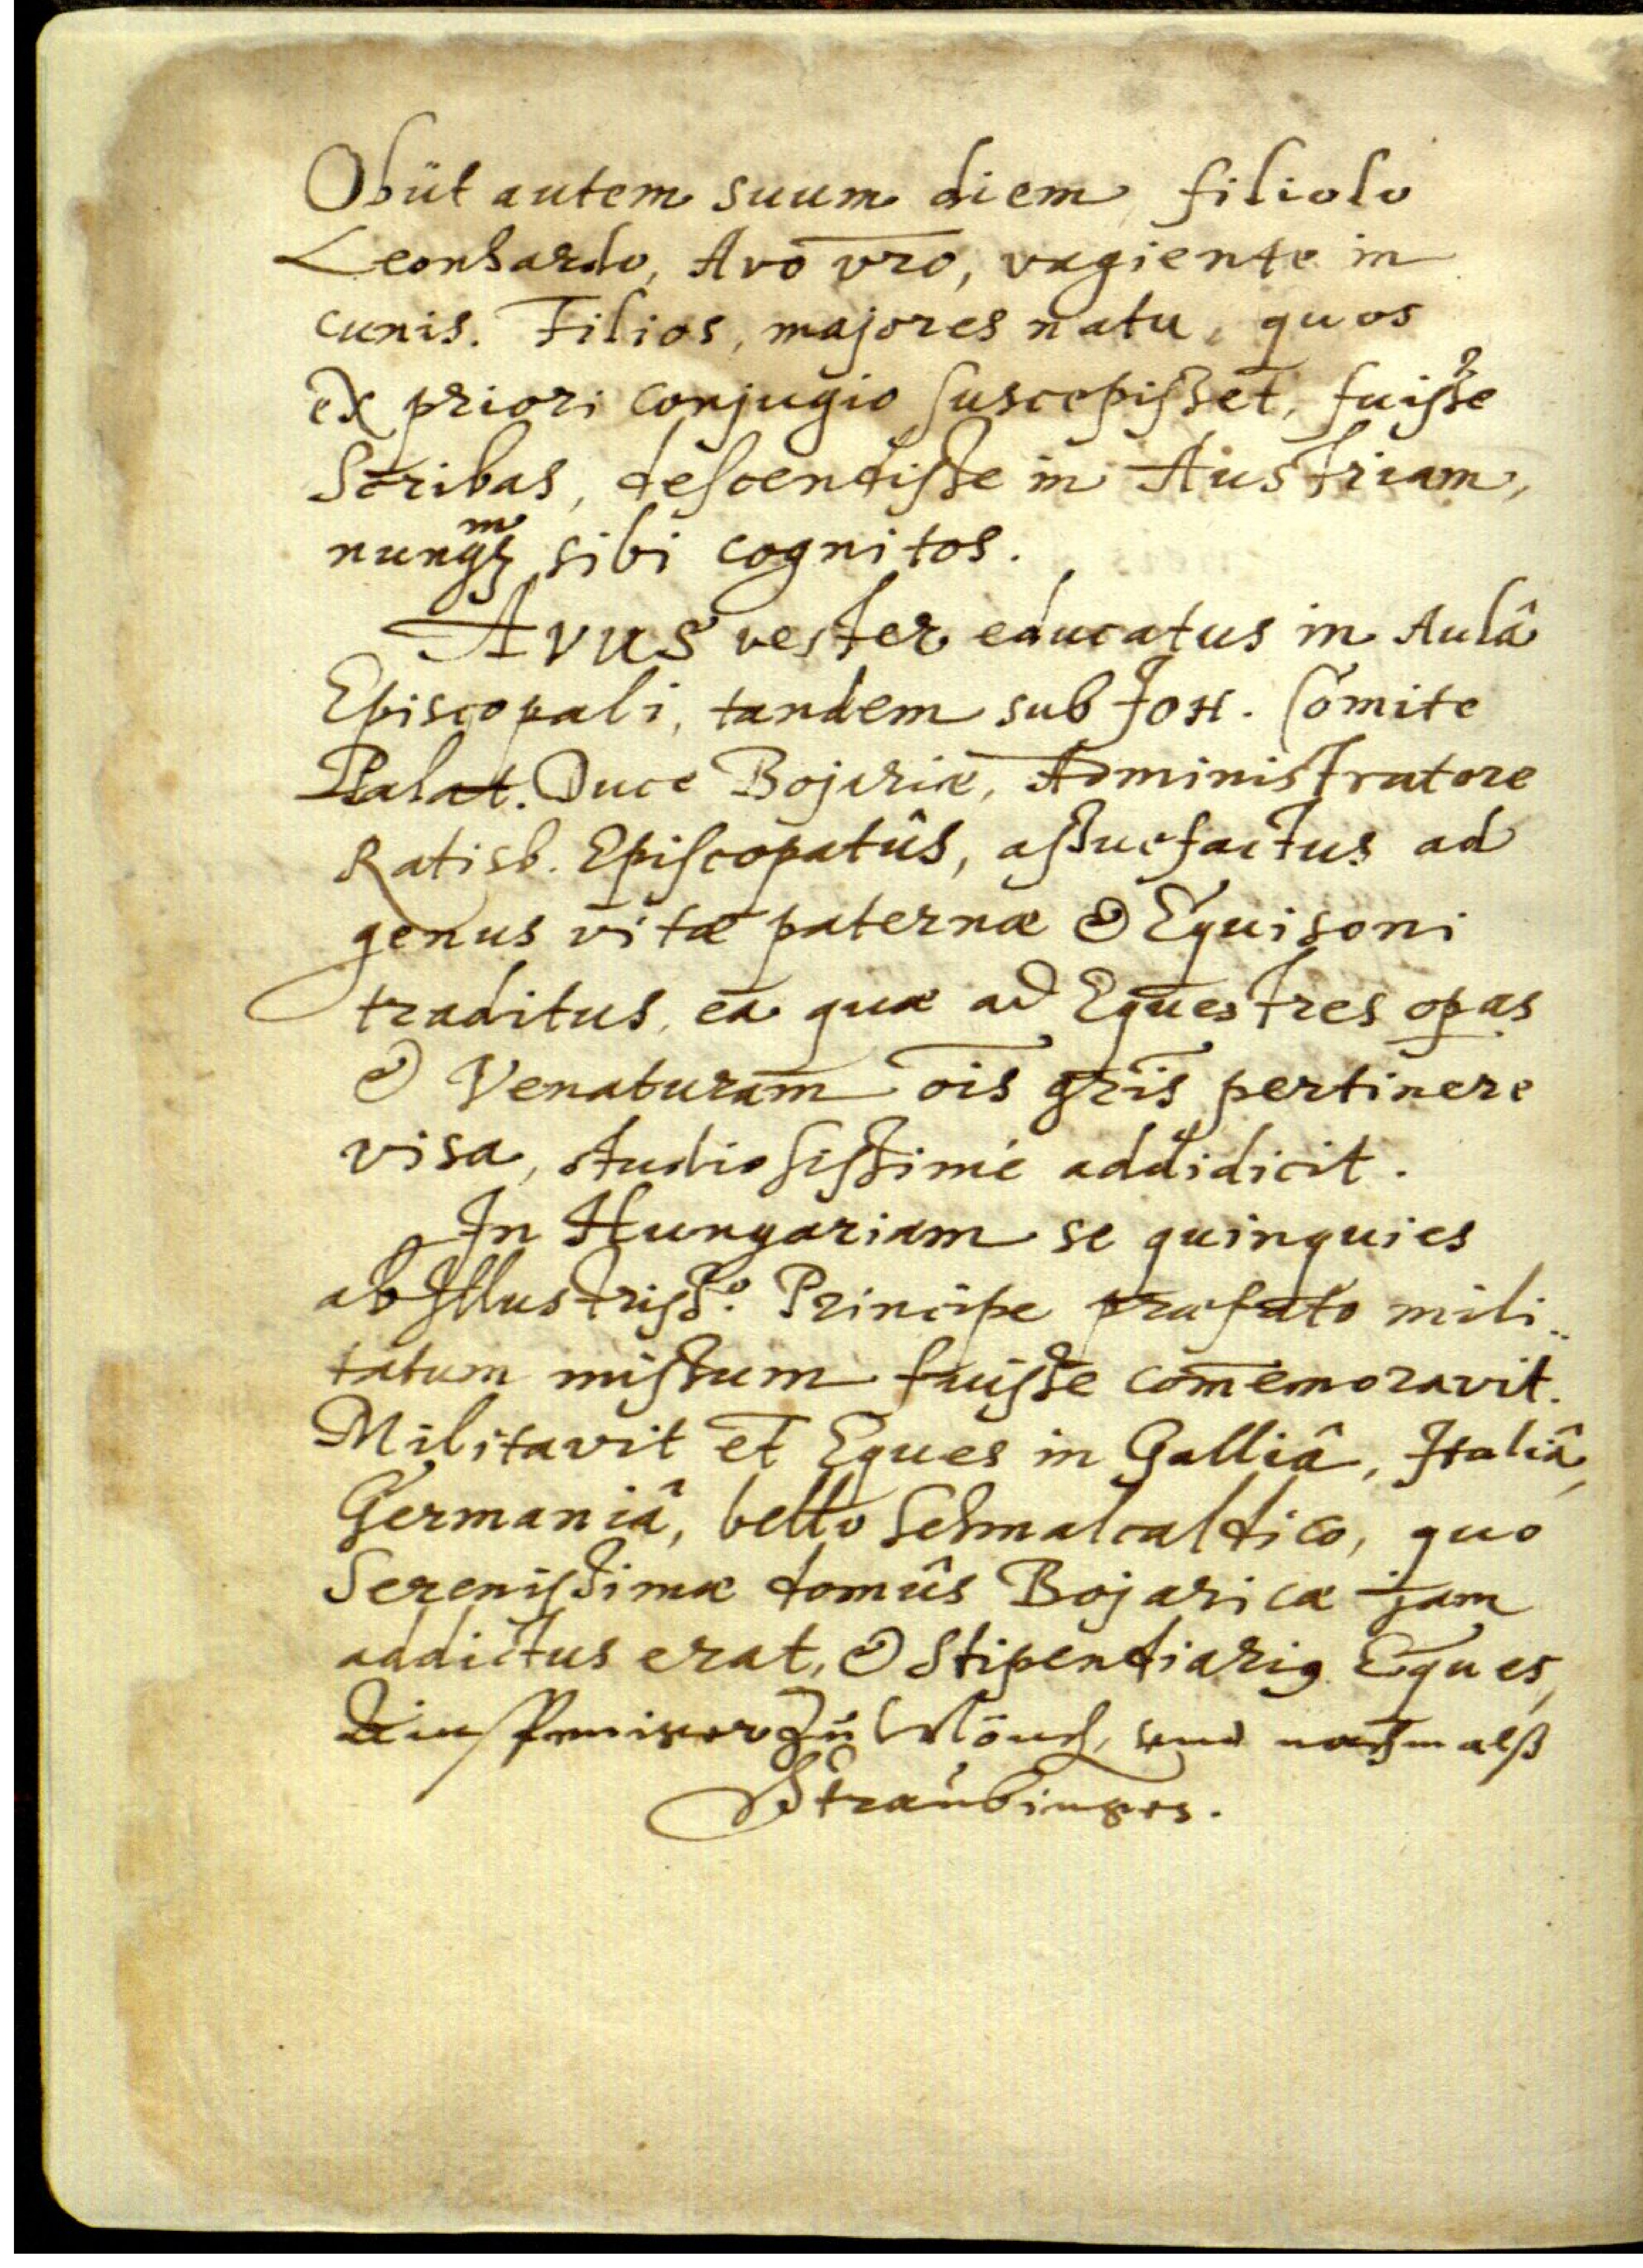 Obiit autem suum diem filiolo
Leonhardo, Avo vr̄o, vagiente in
cunis. Filios, majores natu, quos
ex priori conjugio suscepisset, fuisse
Scribas, descendisse in Austriam,
nunqꝫ sibi cognitos.
Avus vester educatus in Aulâ
Episcopali, tandem sub Joh. Comite
Palat. Duce Bojariæ, Administratore
Ratisb. Episcopatûs, assuefactus ad
genus vitæ paternæ & Equisoni
traditus, ea quæ ad Equestres oꝑas
& Venaturam ōis gr̄is pertinere
visa, studiosissimè addidicit.
In Hungariam se quinquies
ab Illustriss.º Principe præfato mili..
tatum missum fuisse com̄emoravit.
Militavit et Eques in Galliâ, Italiâ,
Germaniâ, bello Schmalcaldico, quo
Serenissimæ domûs Bojaricæ jam
addictus erat, & Stipendiariꝰ Eques,
Ainspenniger Zu Mönch, und nachmalß
Straubinges.